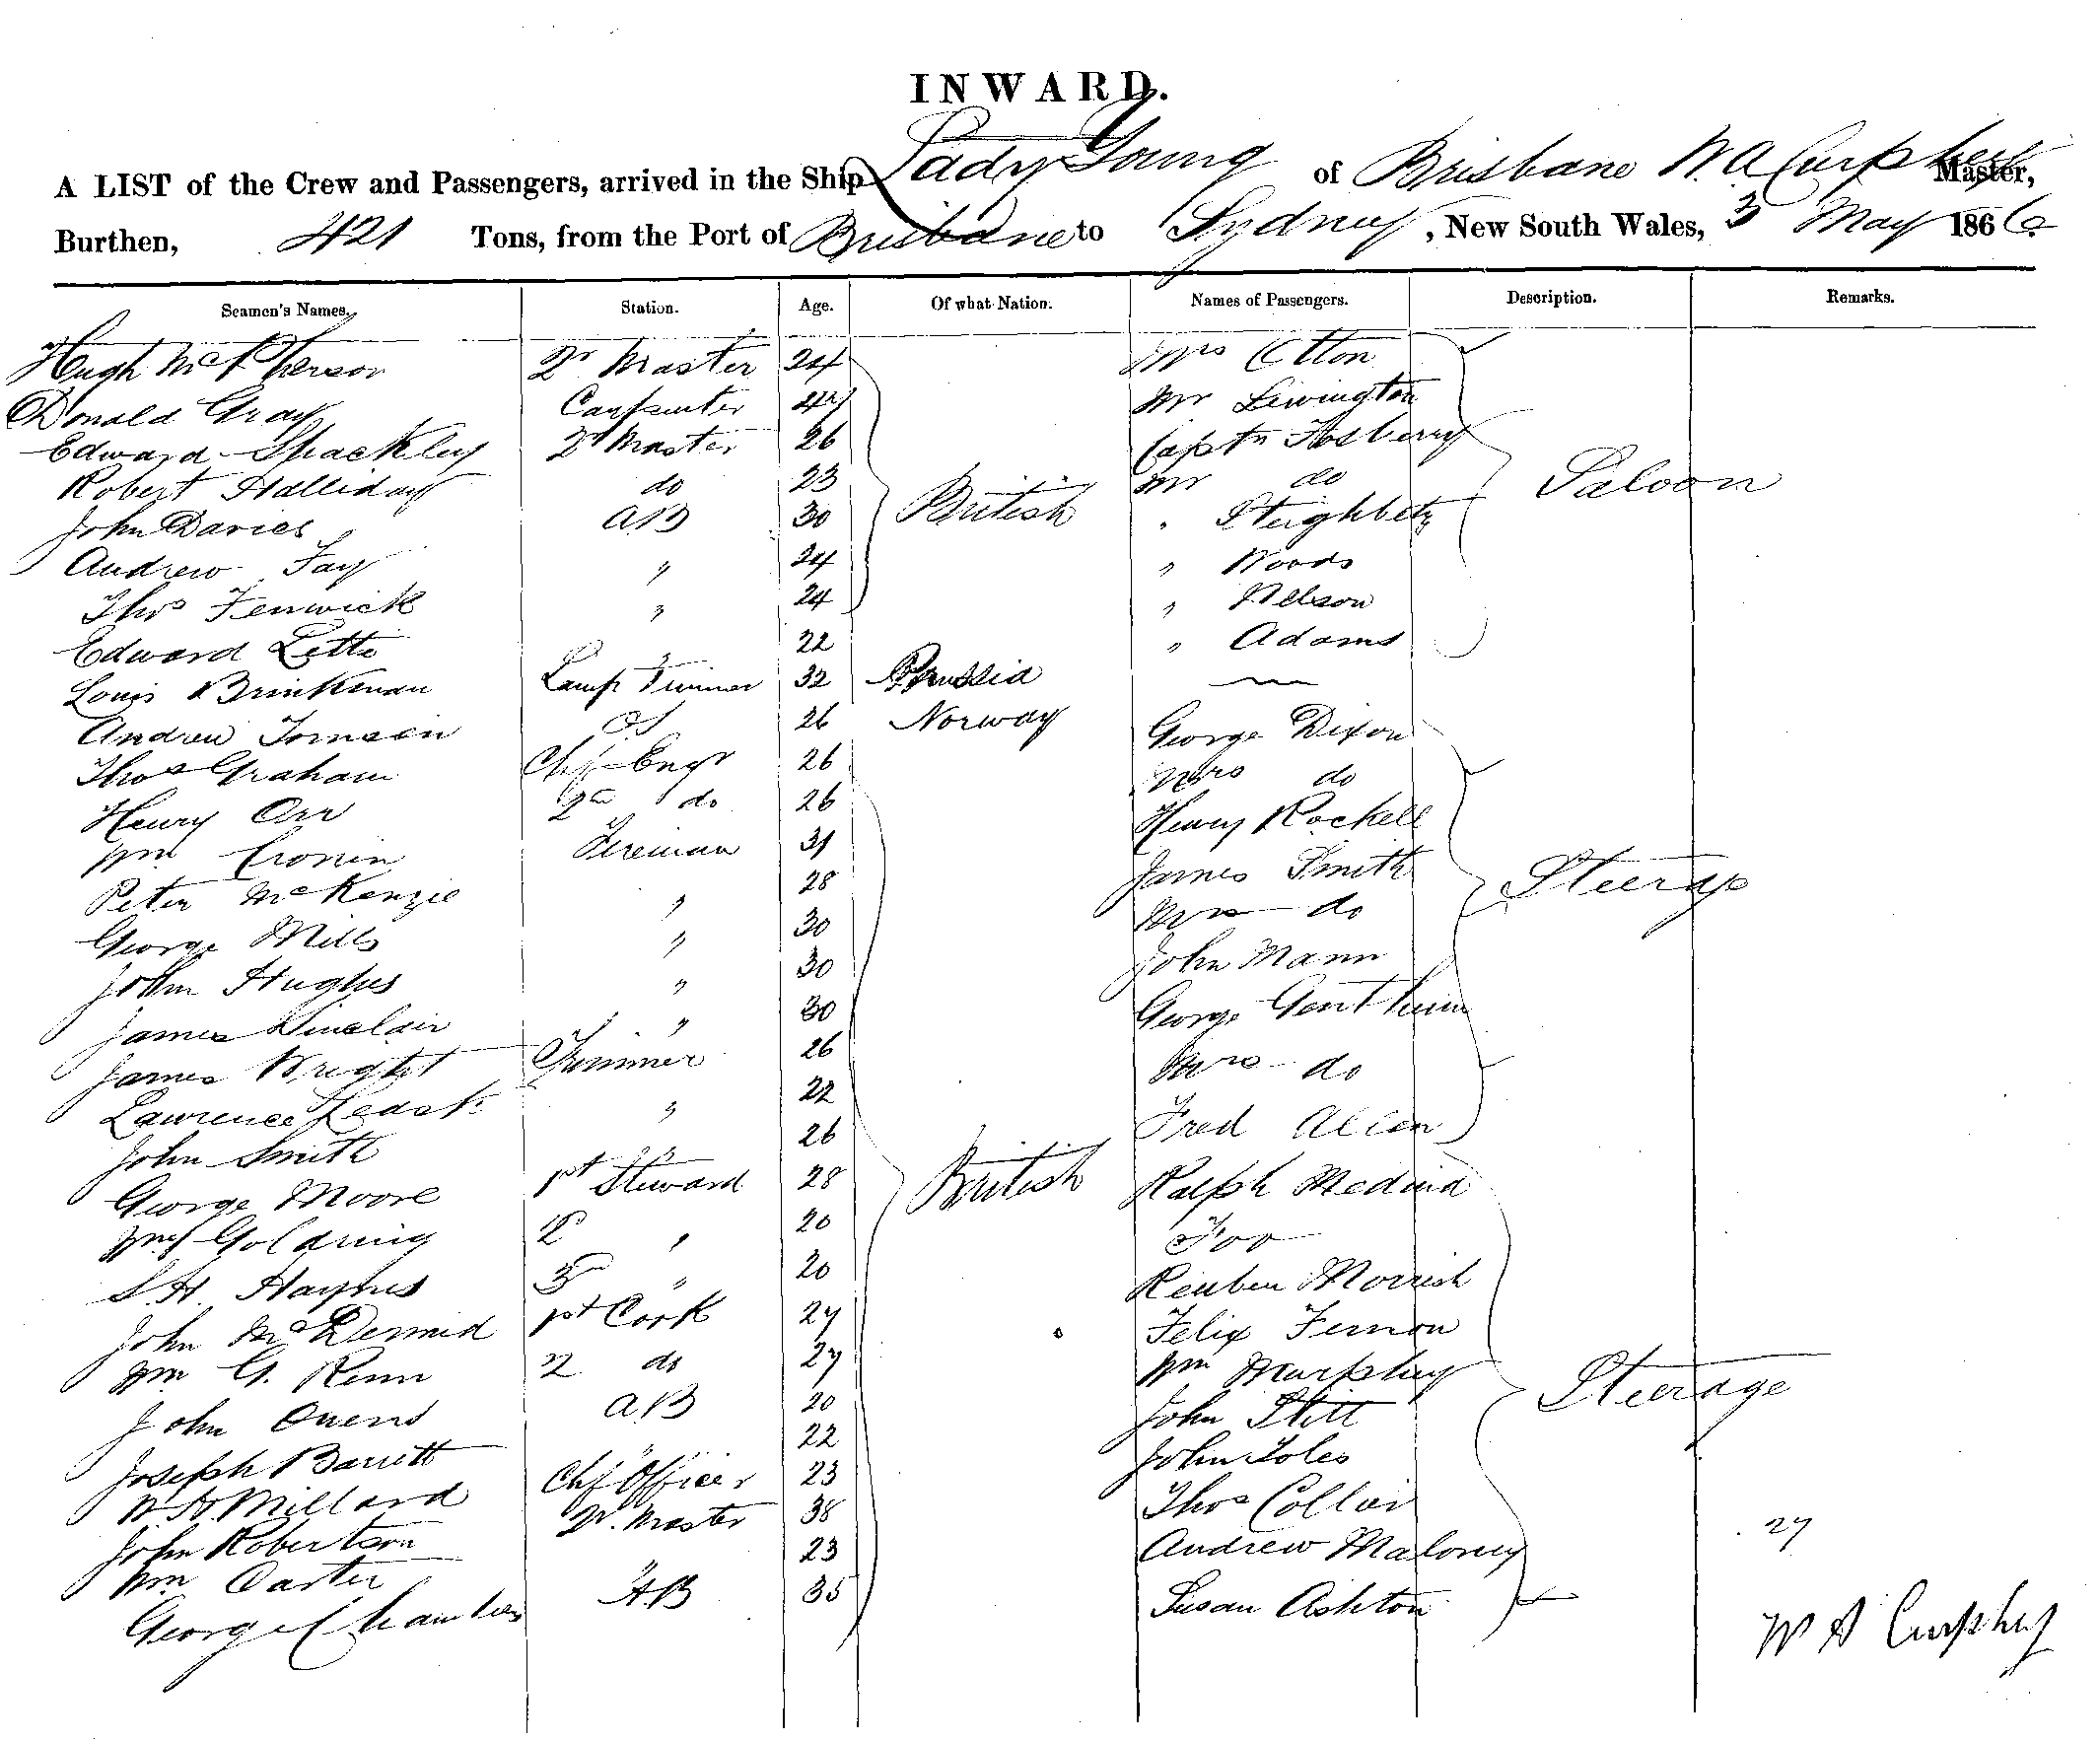 INWARD.
A LIST of the Crew and Passengers, arrived in the Ship Lady Young of Brisbane W. A. Curphey Master,
Burthen, 421 Tons, from the Port of Brisbane to Sydney, New South Wales, 3 May 1866
Seamen's Names. Station. Age. Of what Nation. Names of Passengers. Description. Remarks.
Hugh McPherson Qr Master 24 Mrs
Donald Gray Carpenter Mr Livington
Edward Spackley Qr Master 26 Captn
Robert Halliday do 23 Mr do Saloon
John Davies AB 30 British "
Andrew Fay " 24 " Woods
Thos Fenwick " 24 " Nelson
Edward Letts " 22 " Adams
Louis Brinkman Lamp Trimmer 32 Prussia —
Andrew OS 26 Norway George Dixon
Thos Graham Chf Engr 26 Mrs do
Henry Orr 2nd do 26 Henry Rockell
Wm Cronin Fireman 31 James Smith Steerage
Peter McKenzie " 28 Mrs do
George Mills " 30 John Mann
John Hughes " 30 George
James Sinclair " 30 Mrs do
James Wright Trimmer 26 Fred Allen
Lawrence " 22 Ralph Medina
John Smith " 26
George Moore 1st Steward 28 British Reuben Morrish
Wm Goldring 2d " 20 Felix
S. H. Haynes 3d " 20 Wm Murphy
John McDermid 1st Cook 27 John Stitt Steerage
Wm G. Renn 2 do 27 John Toles
John Owens AB 20 Thos Collier
Joseph Barrett " 22 Andrew Maloney
W. H. Millard Chf Officer 23 Susan Ashton
John Robertson Qr. Master 38 27
Wm Carter " 23
George Chambers AB 35
W A Curphey